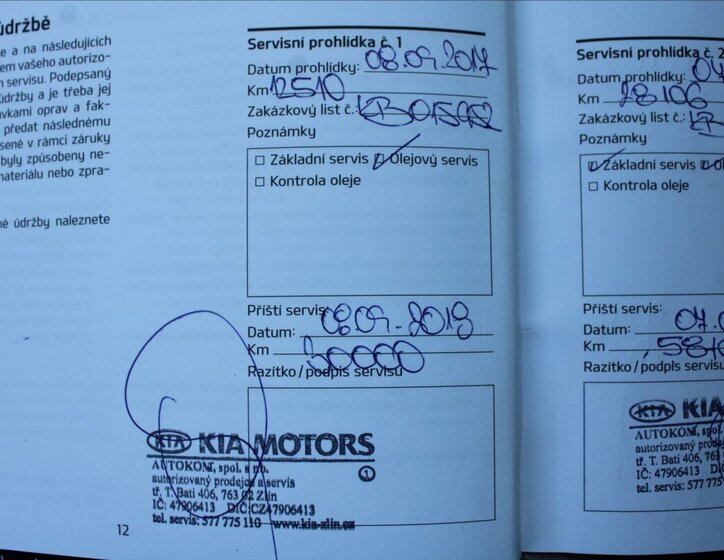 údržbě
e a na následujících
em vašeho autorizo-
m servisu. Podepsaný
údržby a je třeba jej
avkami oprav a fak-
předat následnému
sené v rámci záruky
byly způsobeny ne-
materiálu nebo zpra-
né údržby naleznete
12
Servisní prohlídka č. 1
Datum prohlídky: 08.09.2017
Km 12510
Zakázkový list č.:
Poznámky
□ Základní servis ☑ Olejový servis
□ Kontrola oleje
Příští servis:
Datum: 08.09.2018
Km 30000
Razítko/podpis servisu
KIA KIA MOTORS
AUTOKOM, spol. s r.o. 1
autorizovaný prodejce a servis
tř. T. Bati 406, 763 02 Zlín
IČ: 47906413 DIČ CZ47906413
tel. servis: 577 775 110 www.kia-zlin.cz
Servisní prohlídka č. 2
Datum prohlídky:
Km 28106
Zakázkový list č.:
Poznámky
☑ Základní servis
□ Kontrola oleje
Příští servis:
Datum: 07.0
Km 5810
Razítko/podpis servisu
KIA KIA
AUTOKOM, spol.
autorizovaný prod
tř. T. Bati 406, 763
IČ: 47906413 DIČ
tel. servis: 577 775